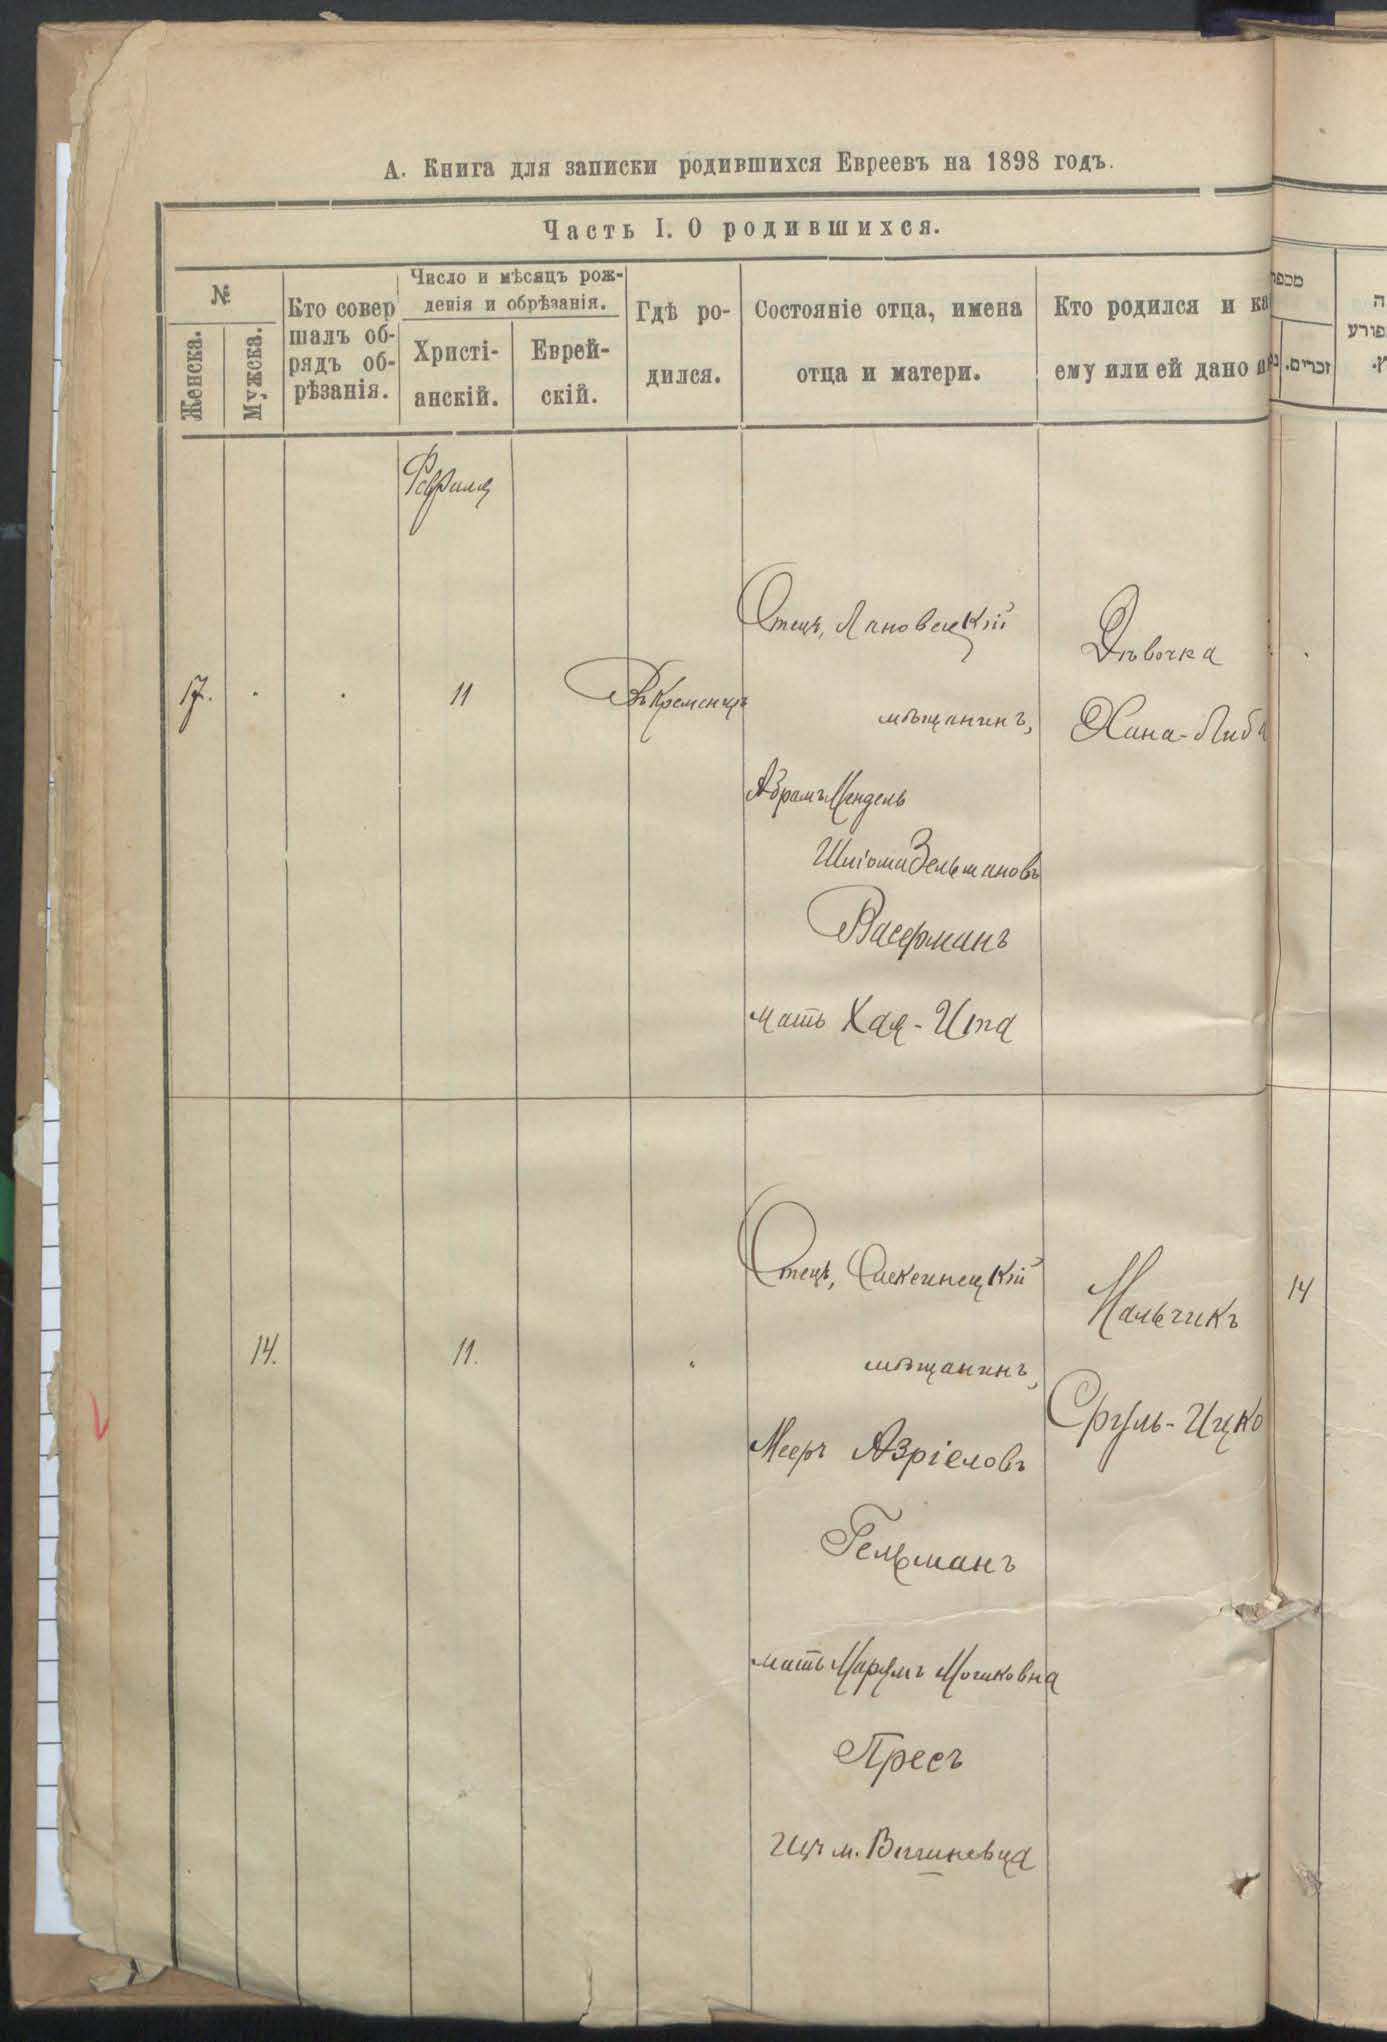 А. Книга для записки родившихся Евреевъ на 1898 годъ.
Часть I. О родившихся.
№
Женска.
Мужска.
Кто совер
шалъ об-
рядъ об-
рѣзанія.
Число и мѣсяцъ рож-
денія и обрѣзанія.
Христі-
анскій.
Еврей-
скій.
Гдѣ ро-
дился.
Состояніе отца, имена
отца и матери.
Кто родился и ка
ему или ей дано
זכרים.
Февраля
17.
11
Въ Кременцѣ
Отецъ, Лановецкій
мѣщанинъ,
Абрамъ Мендель
Шліома Зельмановъ
Васерманъ
мать Хая-Ита
Дѣвочка
Хана-Либа
14.
11.
Отецъ,
мѣщанинъ,
Мееръ Азріеловъ
Гельманъ
мать Марымъ Мошковна
Пресъ
м.
Мальчикъ
Сруль-Ицко
14